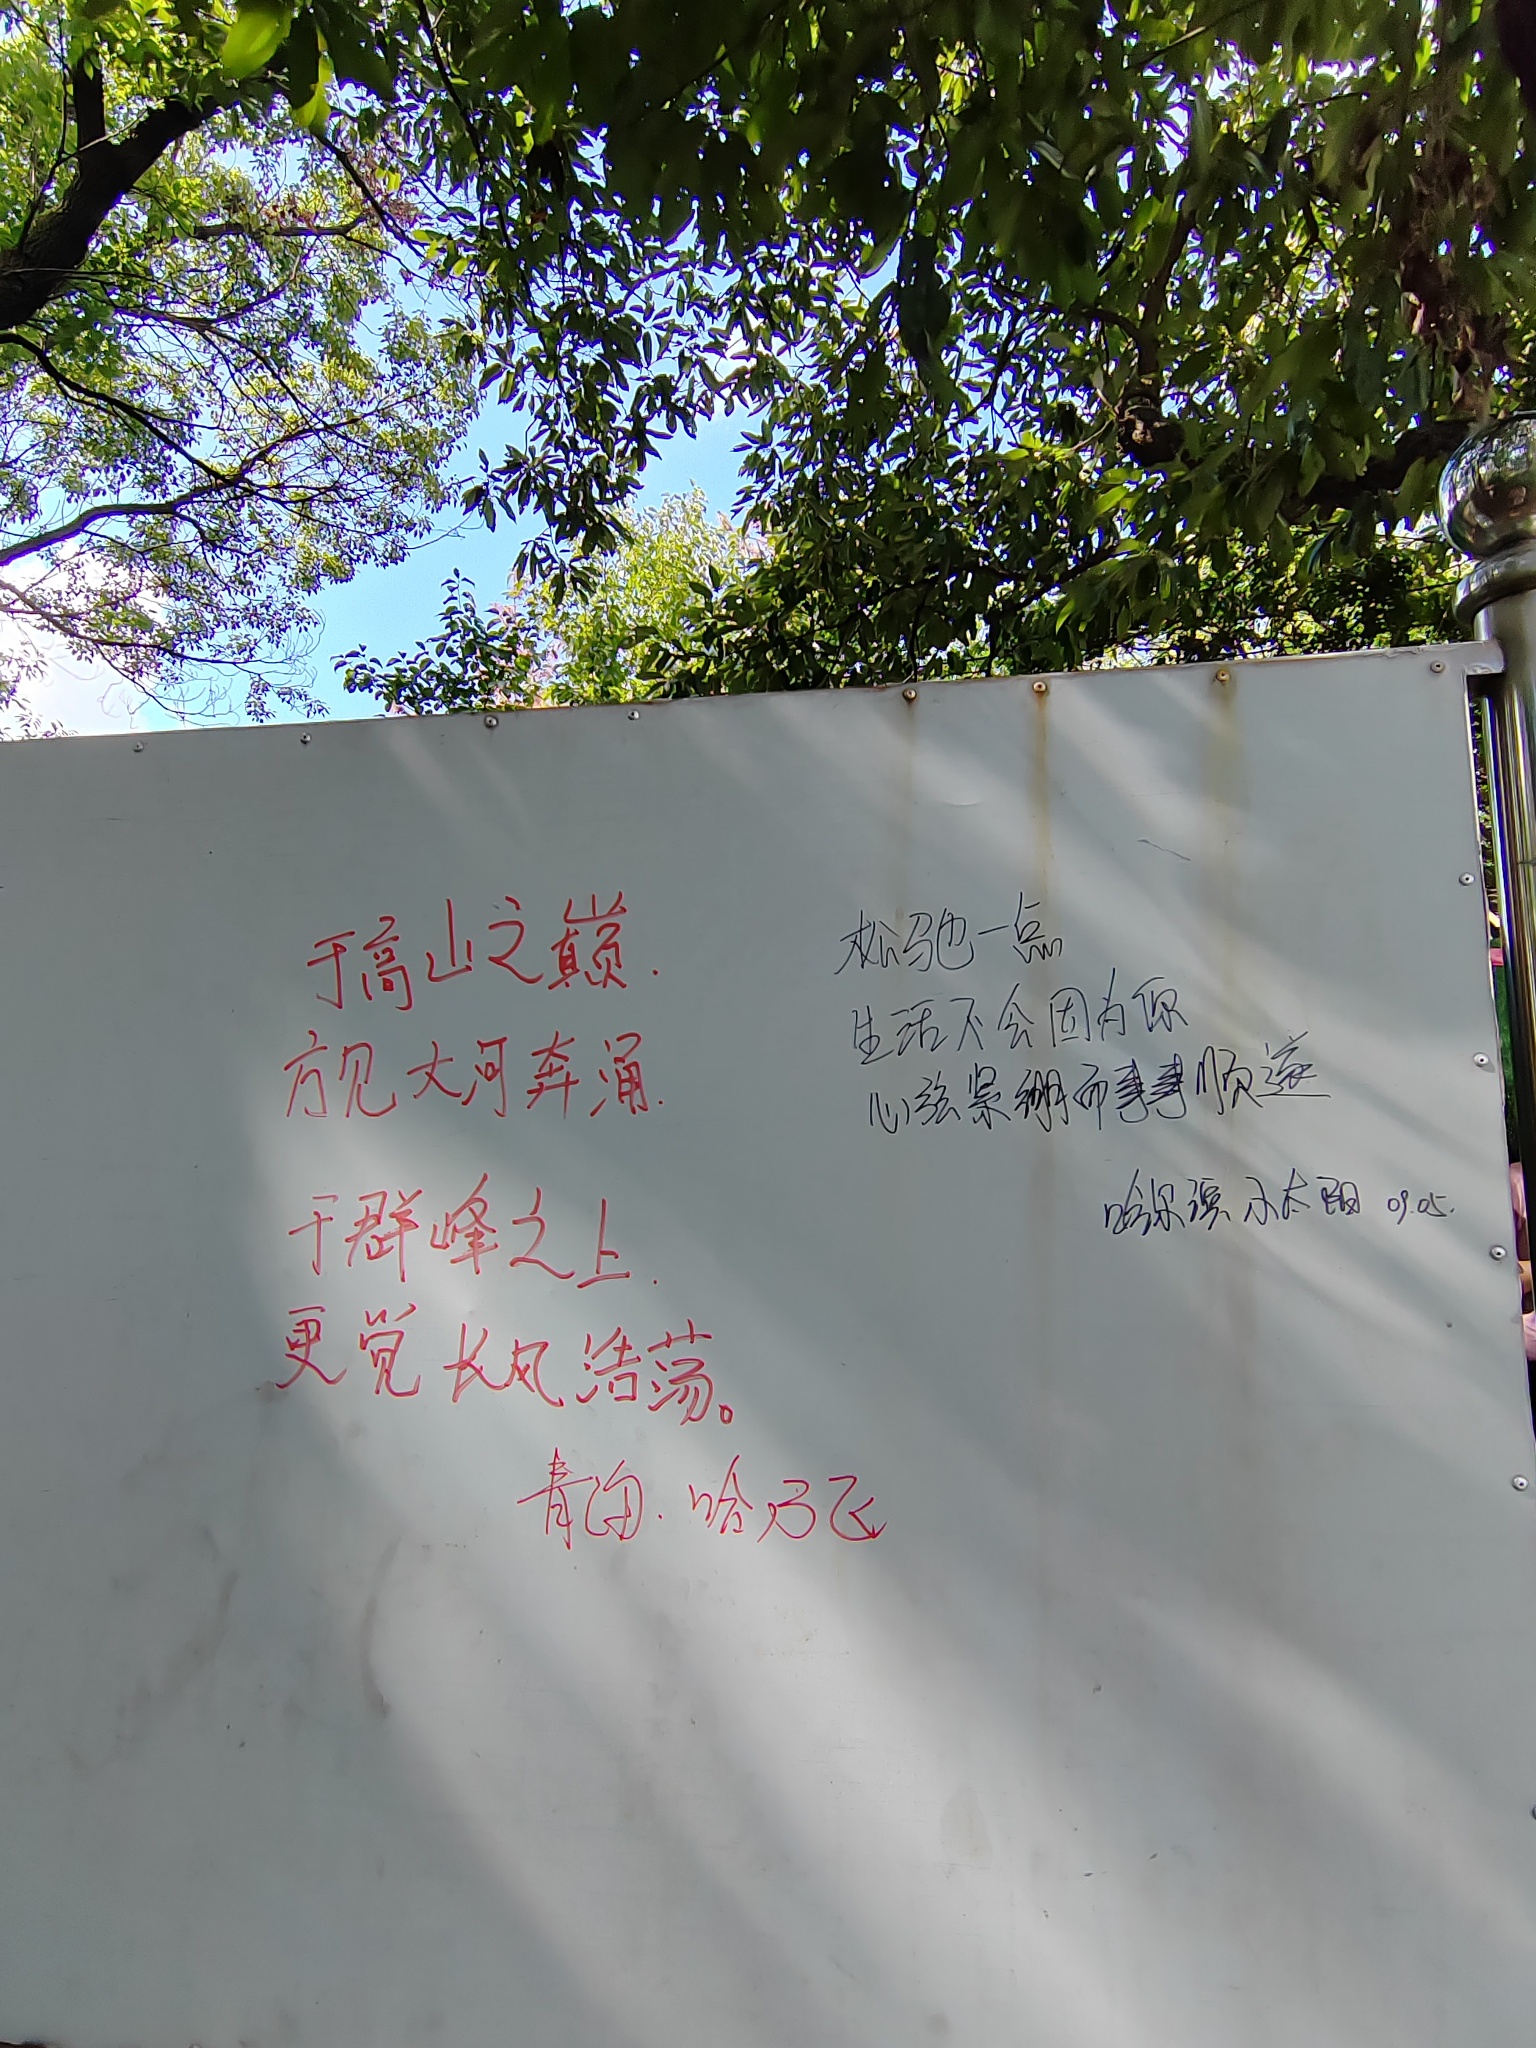 于高山之巅.
方见大河奔涌.
于群峰之上.
更觉长风浩荡。
青海.哈乃飞
松弛一点
生活不会因为你
心弦紧绷而事事顺遂
哈尔滨小太阳 09.05.